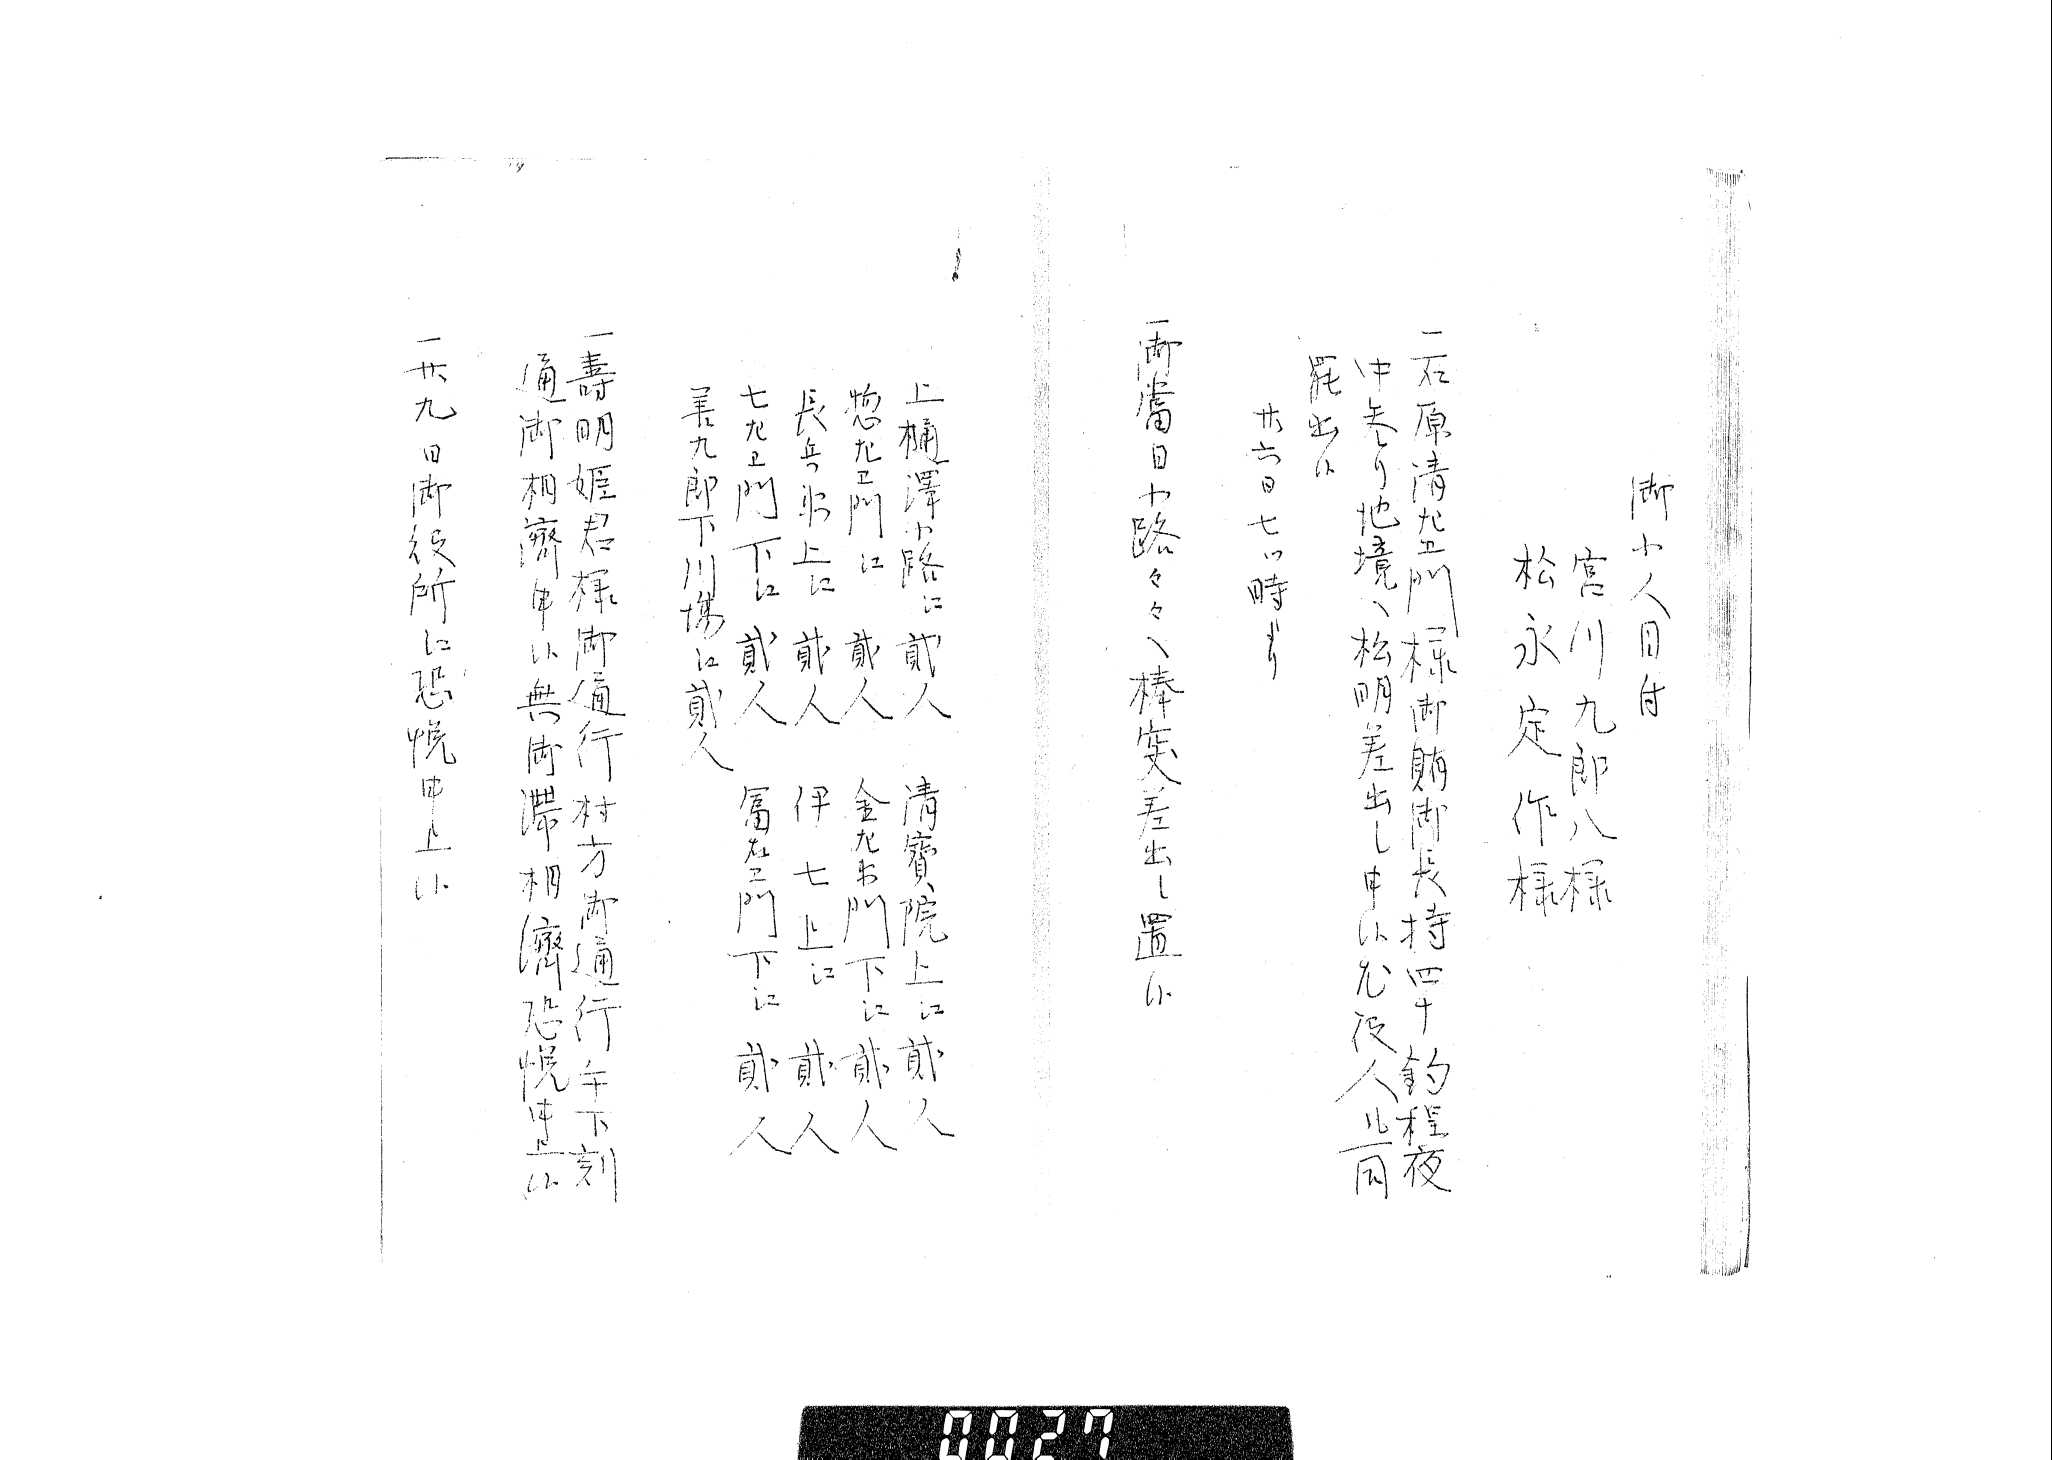 御小人目付
宮川九郎八様
松永定作様
一石原清左衛門様御賄御長持四十釣程夜
中参り地境へ松明差出し申候尤役人共一同
罷出候
廿六日七ツ時より
一御當日小路々々へ棒突差出し置候
上樋澤小路江貮人 清寶院上江貮人
惣左衛門江 貮人 金左衛門下江貮人
長兵衛上江 貮人 伊七上江 貮人
七左衛門下江 貮人 冨右衛門下江 貮人
善九郎下川場江貮人
一壽明姫君様御通行村方御通行午下刻
通御相濟申候無御滞相濟恐悦申上候
一廿九日御役所江恐悦申上候
0027